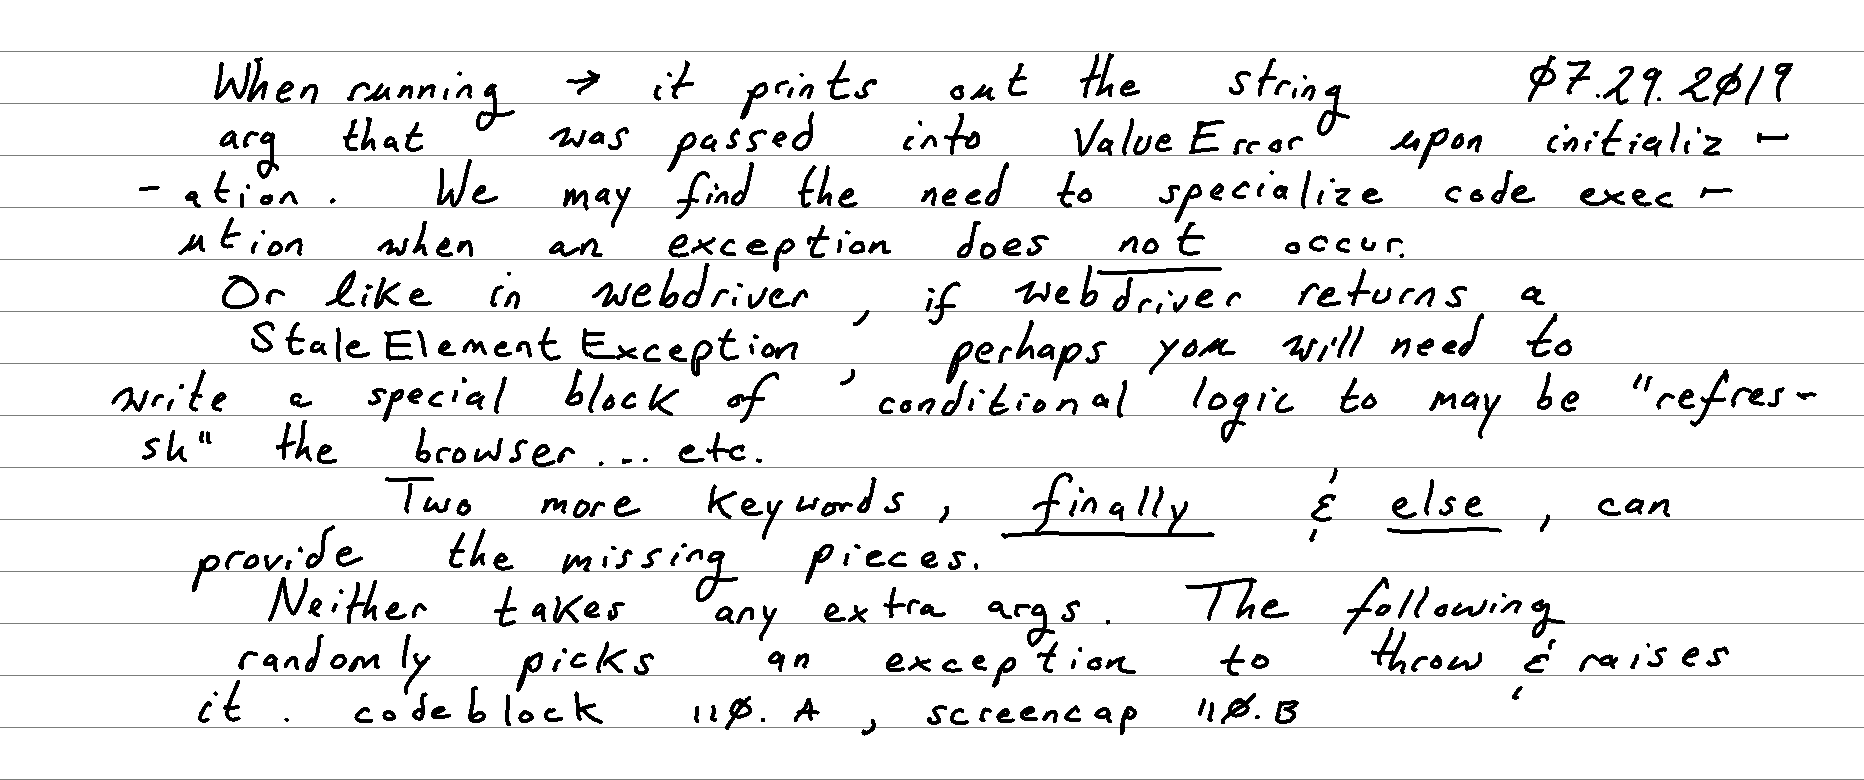 When running → it prints out the string 07.29.2019
arg that was passed into ValueError upon initializ -
- ation. We may find the need to specialize code exec -
ution when an exception does not occur.
Or like in webdriver, if webdriver returns a
StaleElementException, perhaps you will need to
write a special block of conditional logic to may be "refres-
sh" the browser... etc.
Two more keywords, finally & else, can
provide the missing pieces.
Neither takes any extra args. The following
randomly picks an exception to throw & raises
it. codeblock 110.A, screencap 110.B